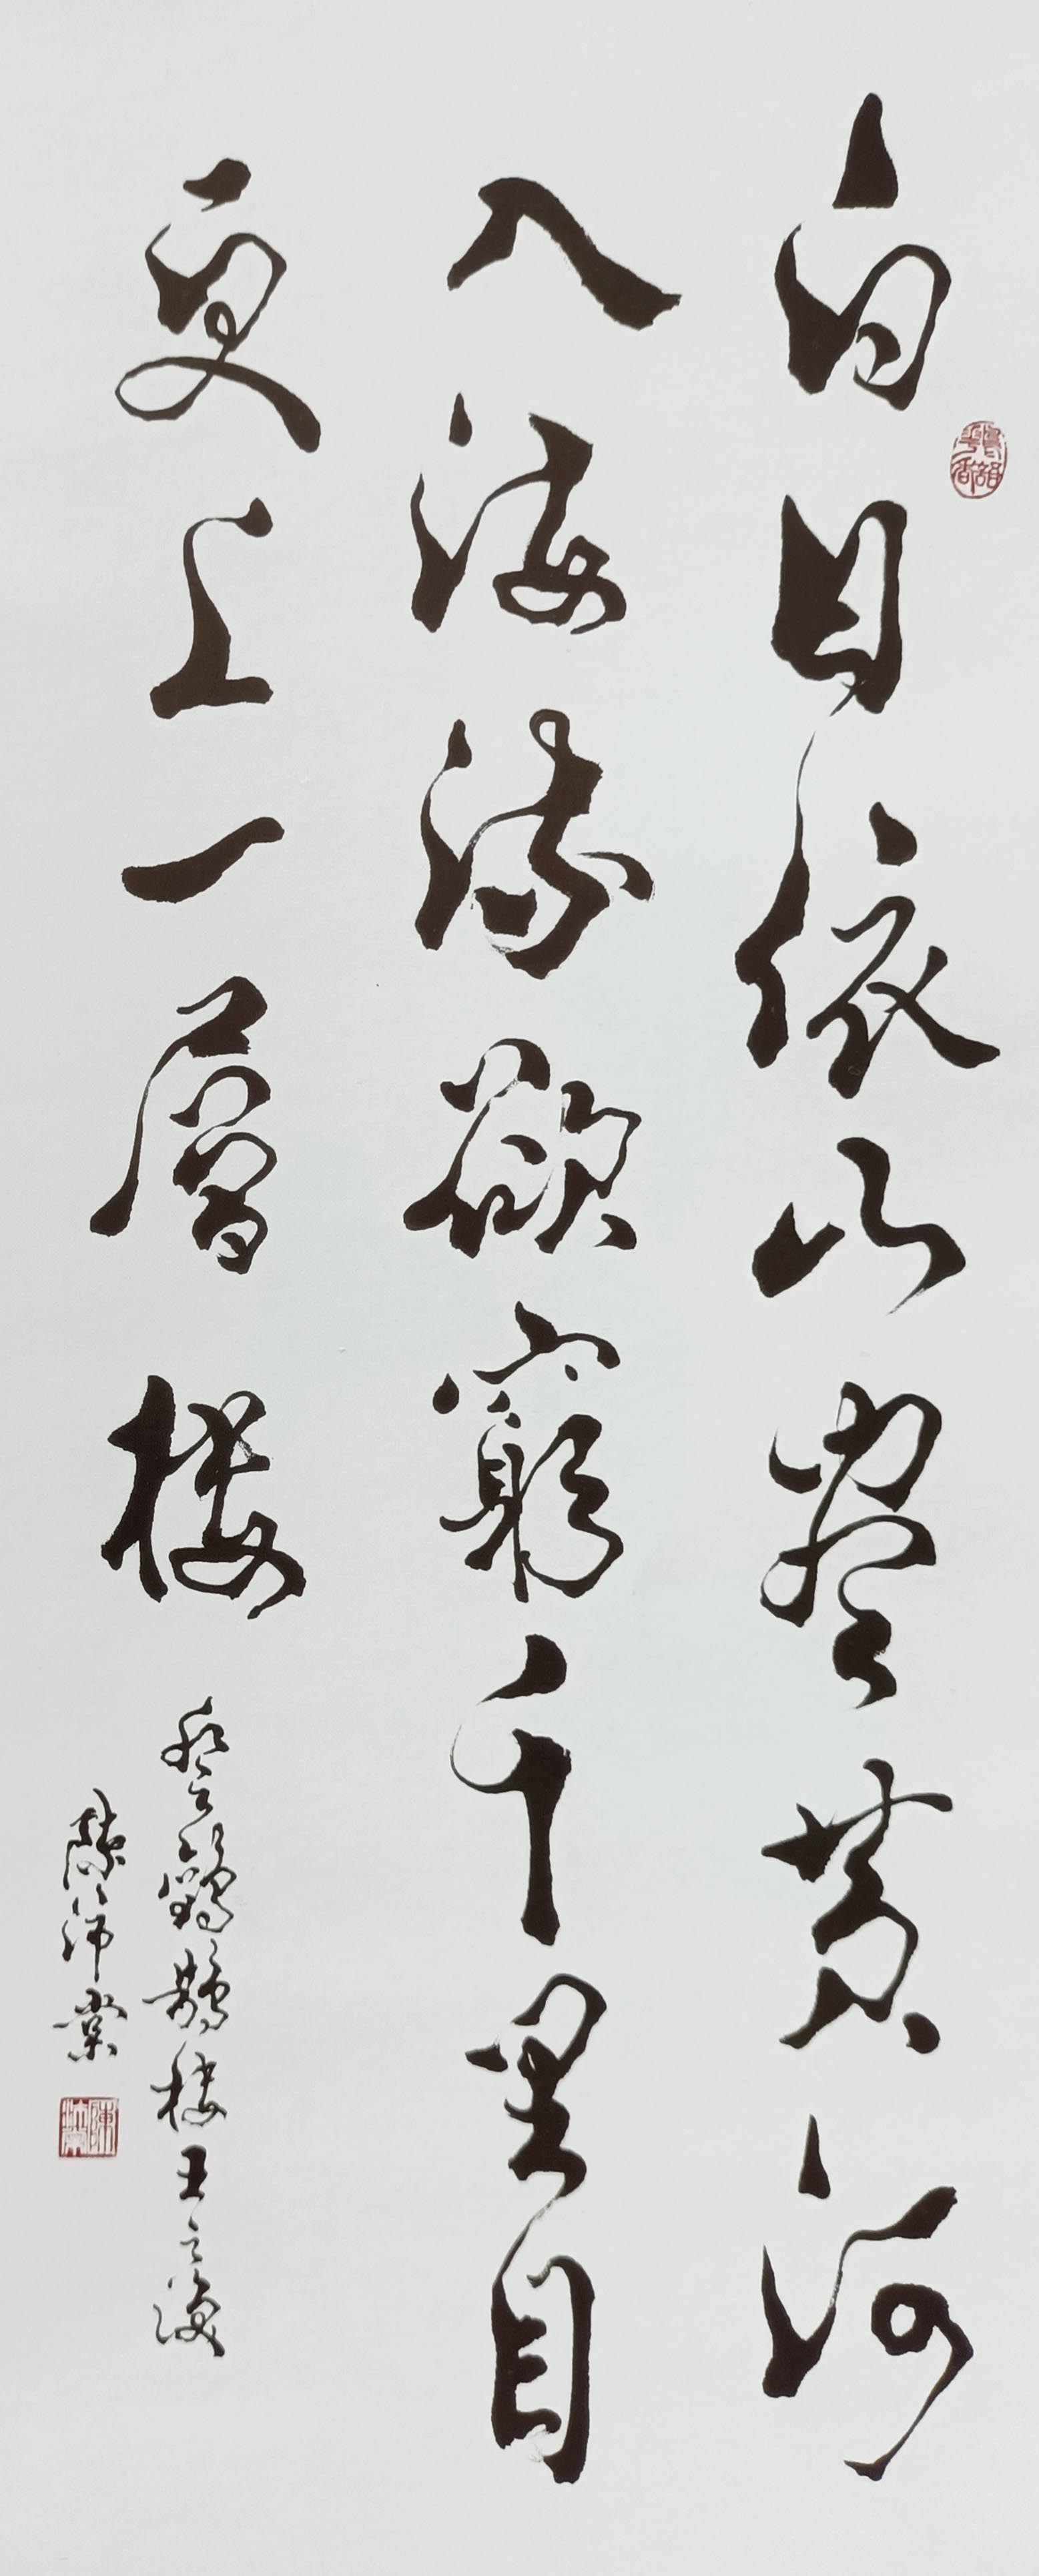 白日依山盡黃河
入海流欲窮千里目
更上一層樓
登鸛鵲樓王之渙
陳沛棠